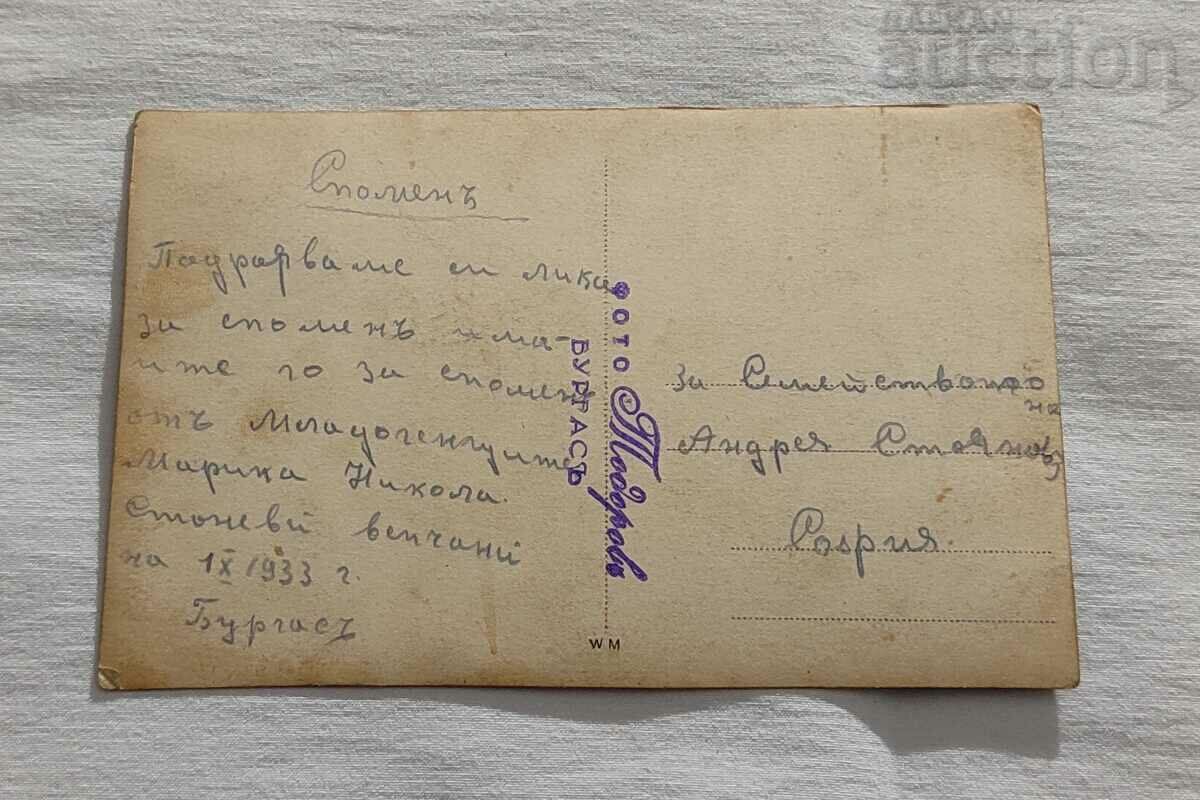 Споменъ
Подраряваме си лика
за споменъ има-
ите го за спомен
отъ Младоженците
Марика Никола.
Стоневи венчани
на 1 X 1933 г.
Бургасъ
ФОТО Тодоровъ
БУРГАСЪ
WM
за Семейството
на
Андрея Стоянов
София.
auction